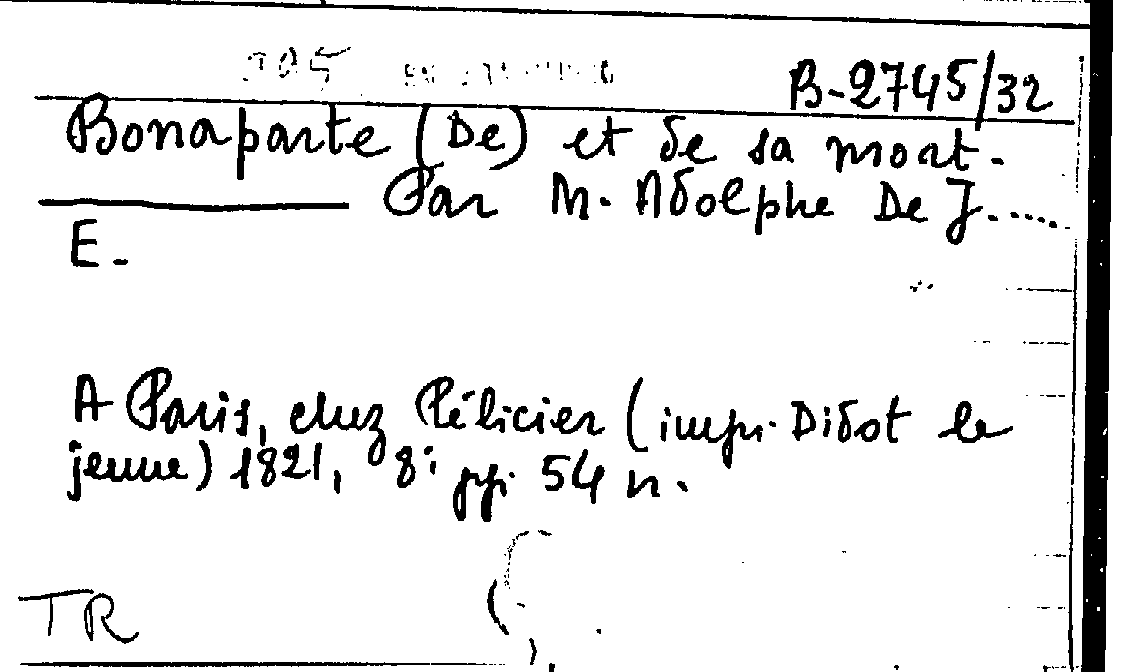 B-2745/32
Bonaparte (De) et de sa mort.
Par M. Adolphe De J.....
E.
A Paris, chez Pélicier (impr. Didot le
jeune) 1821, 8º pp. 54 n.
TR